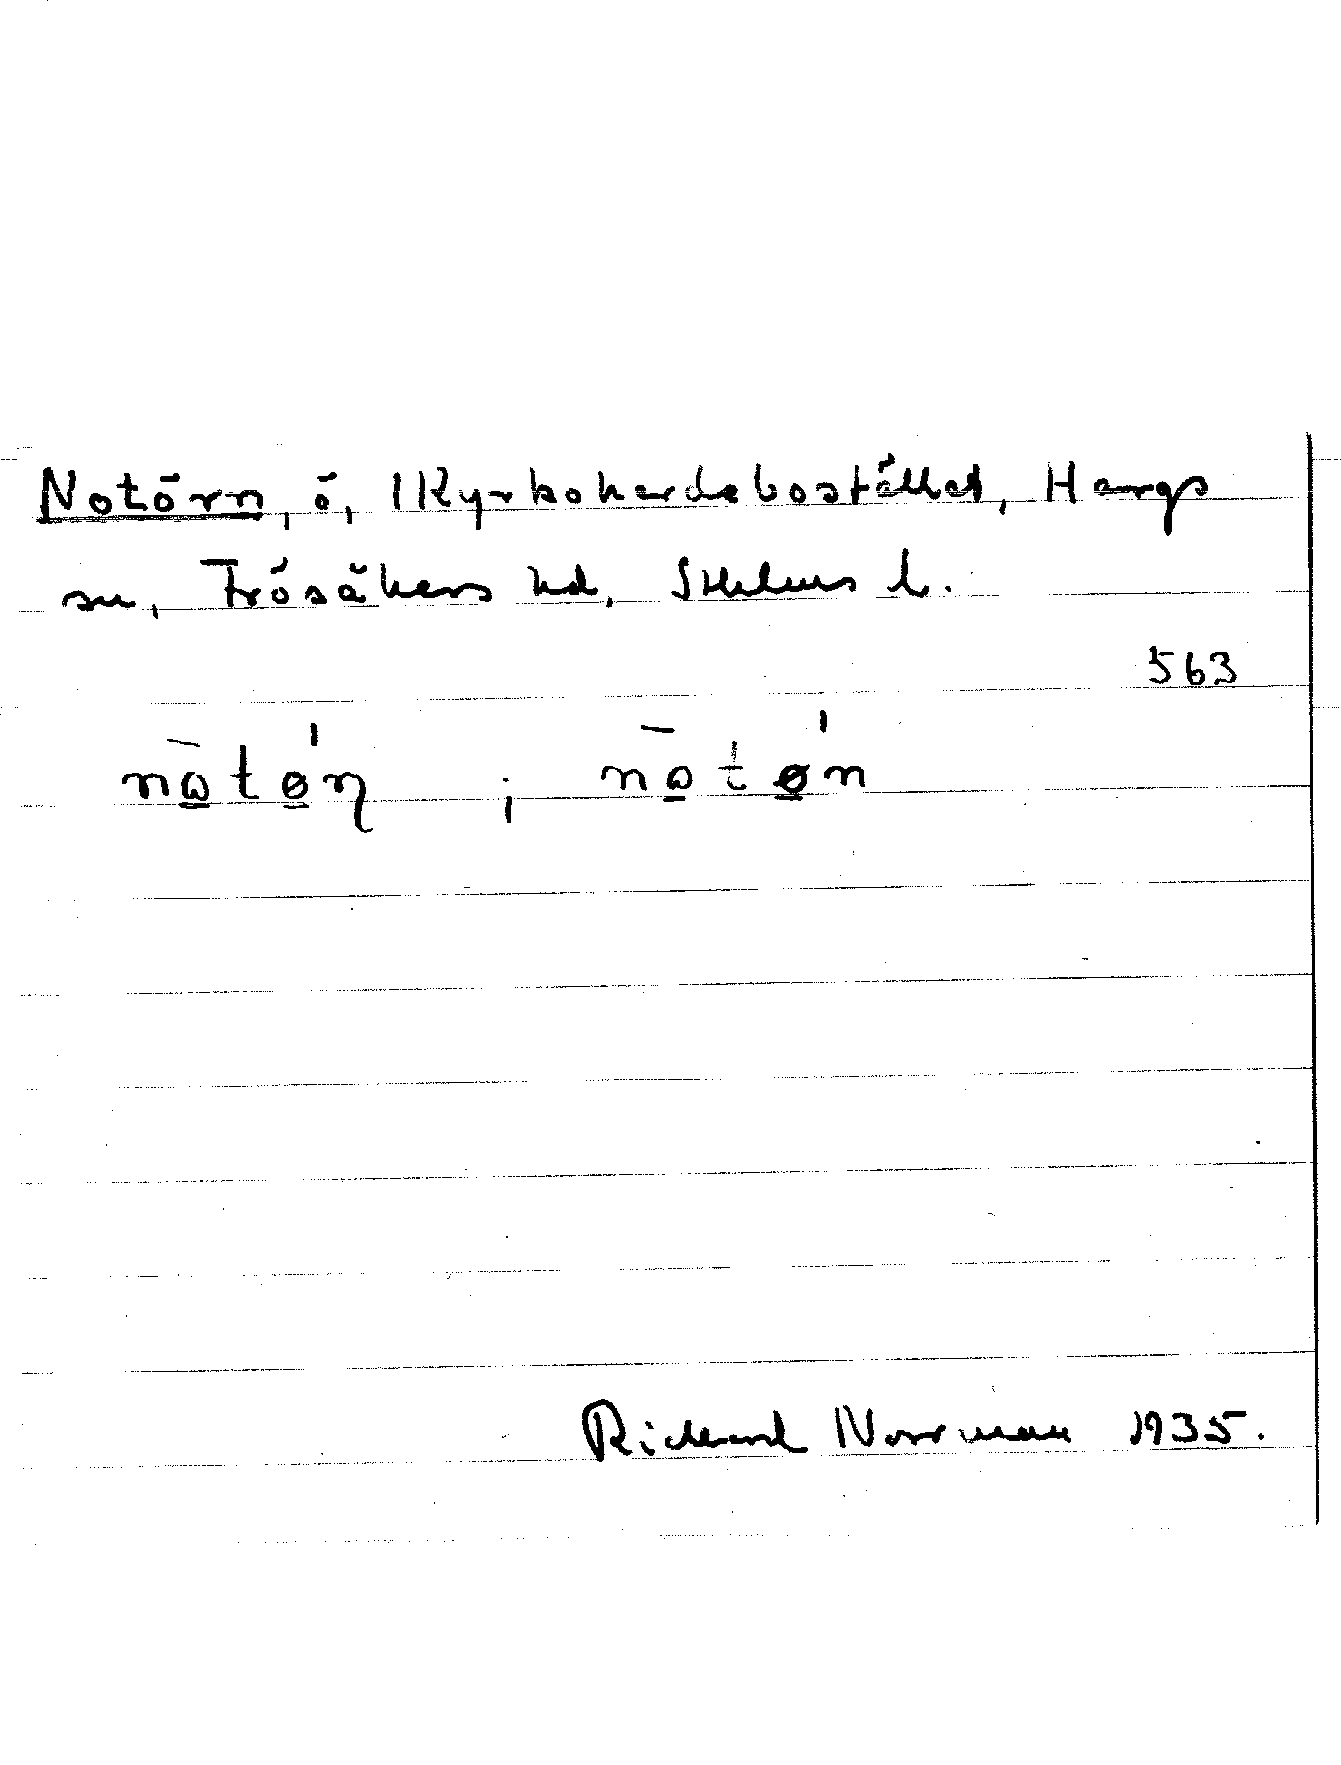 Notörn, ö, 1 Kyrkoherdebostället, Hargs
sn, Frösåkers hd, Sthlms l.
563
nω̲tø̲ɳ ; no̲tø̲n
Richard Norrman 1935.